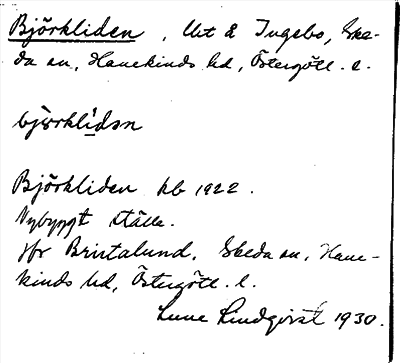 Björkliden, Ut å Ingebo, Ske-
da sn, Hanekinds hd, Östergötl. l.
Björkliden kb 1922.
Nybyggt ställe.
Jfr Brintalund, Skeda sn, Hane-
kinds hd, Östergötl. l.
Sune Lindqvist 1930.